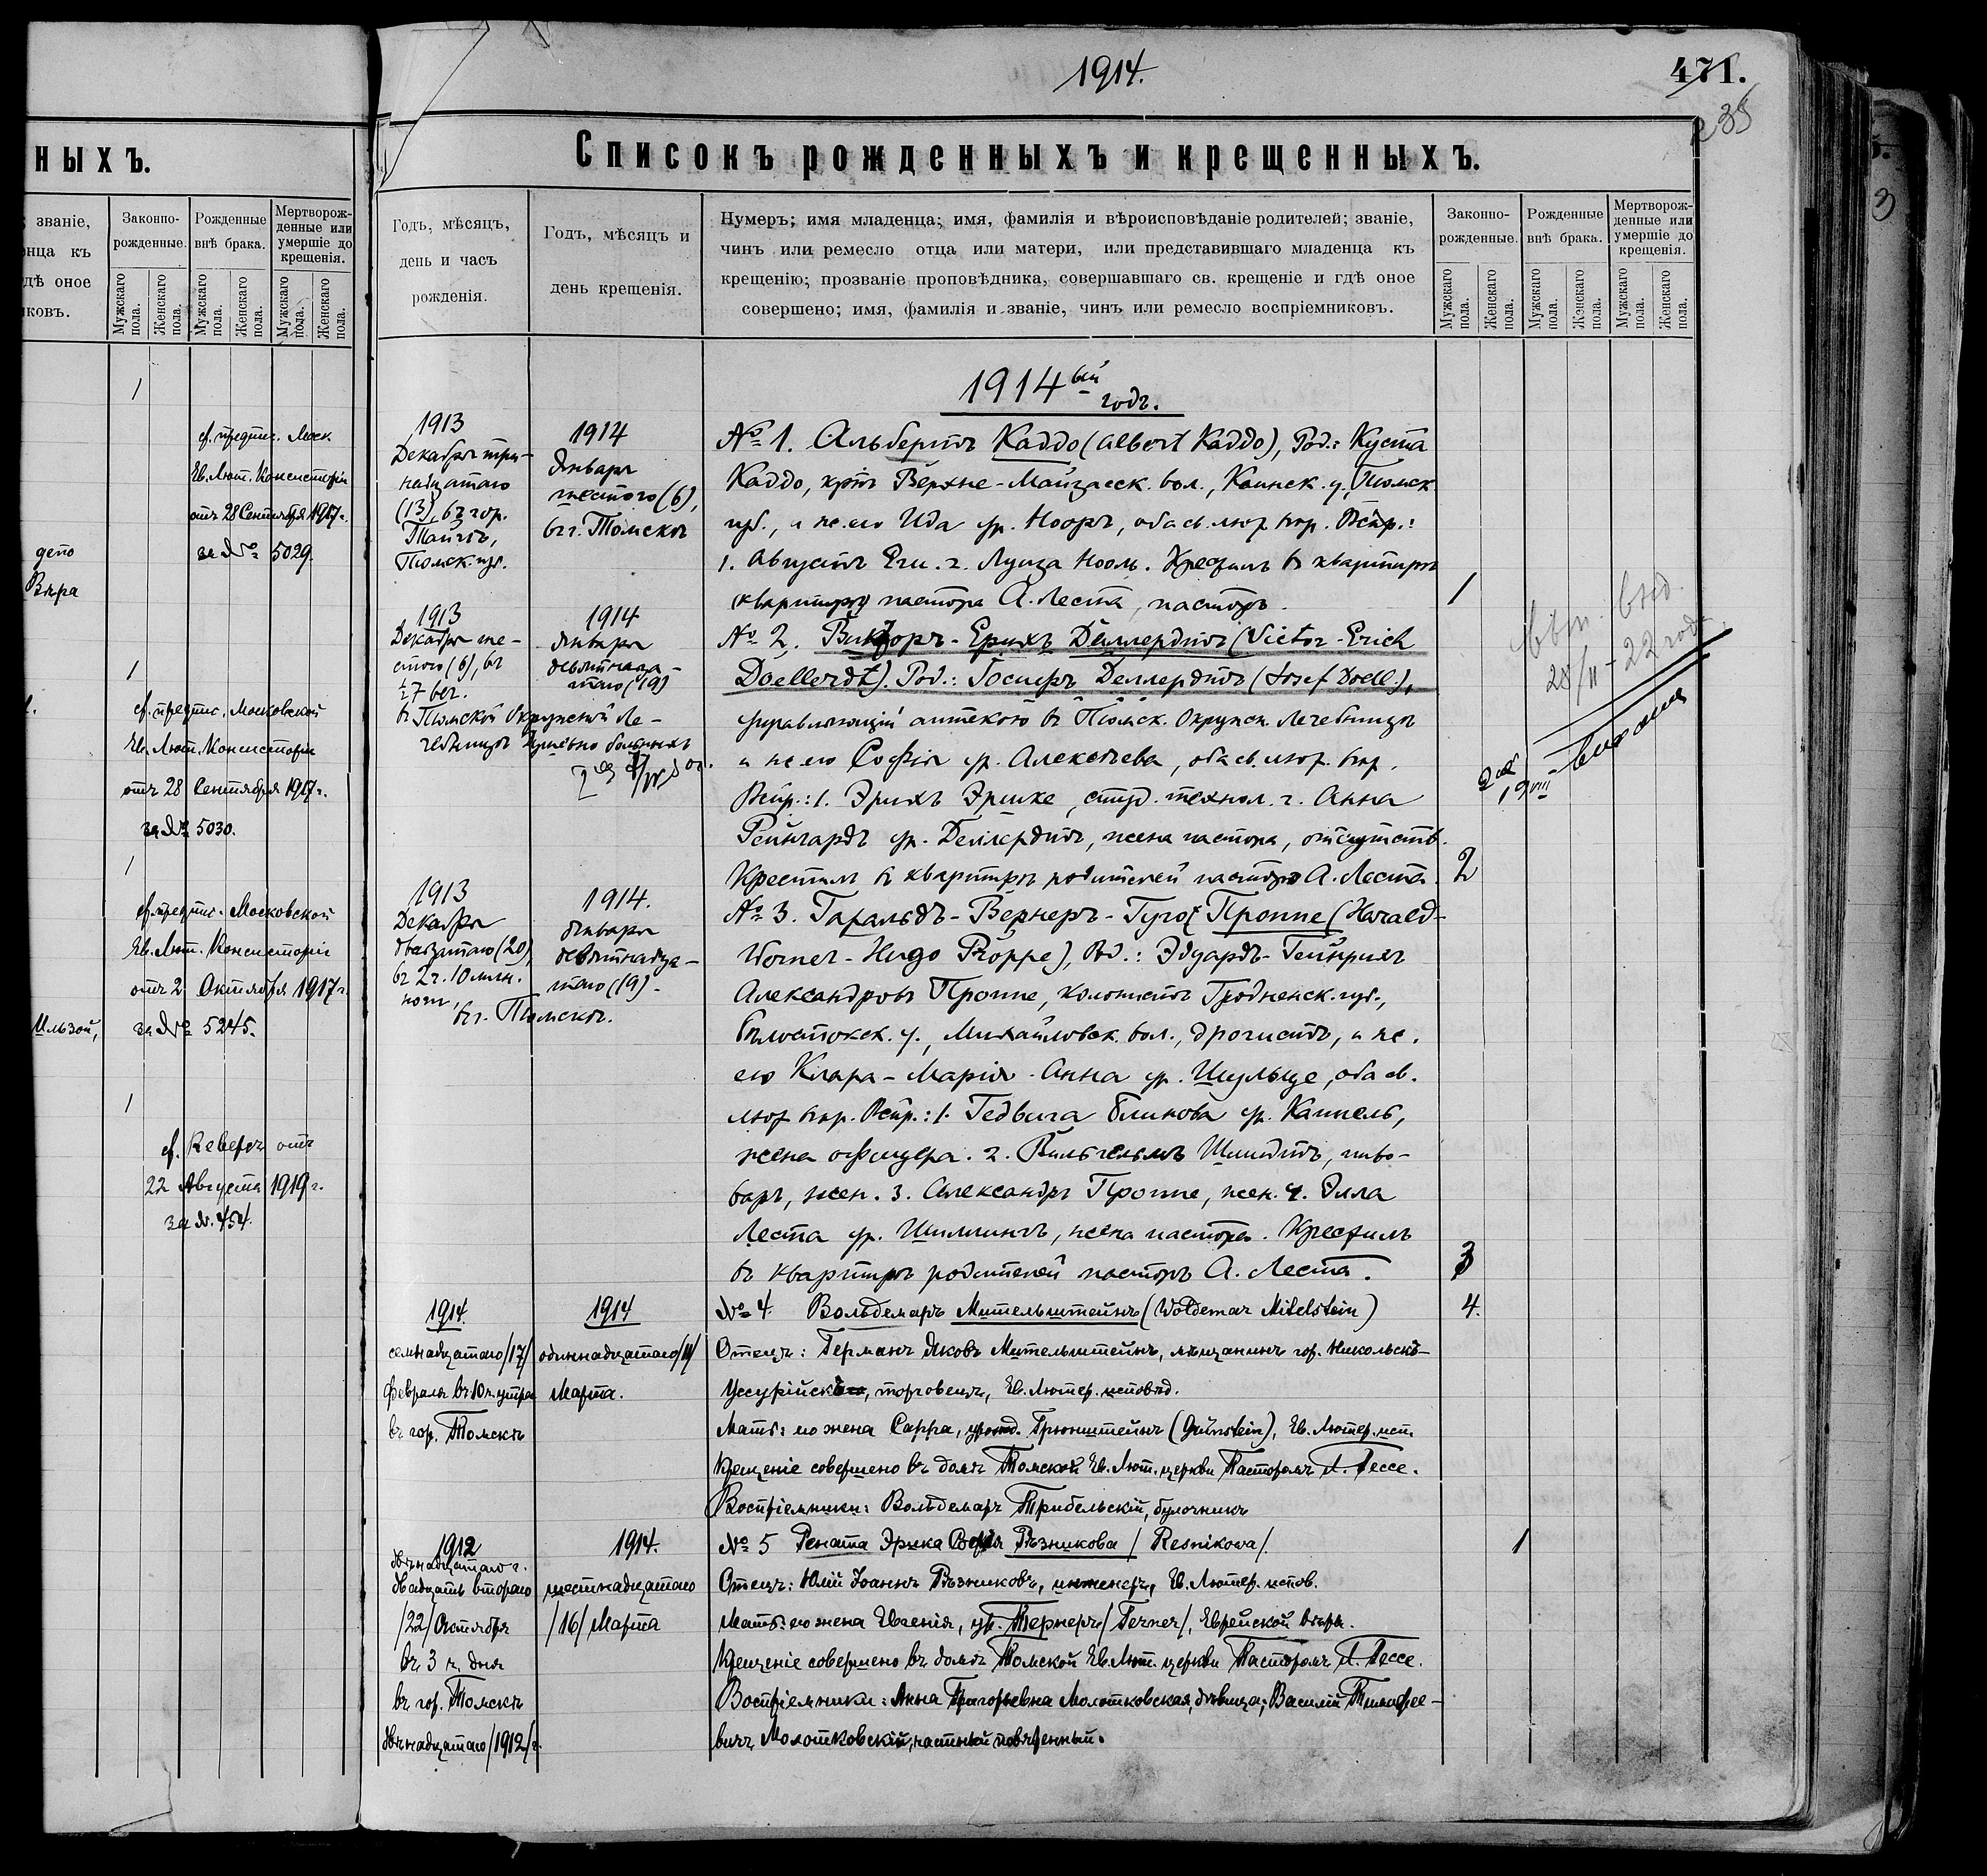 1914.
471.
235
ныхъ.
званіе,
нца къ
дѣ оное
иковъ.
Законно-
рожденные.
Рожденные
внѣ брака.
Мертворож-
денные или
умершіе до
крещенія.
Мужскаго пола.
Женскаго пола.
Мужскаго пола.
Женскаго пола.
Мужскаго пола.
Женскаго пола.
1
cf. предпис. Моск.
Ев. Лют. Консисторіи
отъ 28 Сентября 1917 г.
за № 5029.
депо
Вѣра
1
cf. предпис. Московской
Ев. Лют. Консисторіи
отъ 28 Сентября 1917 г.
за № 5030.
1
cf. предпис. Московской
Ев. Лют. Консисторіи
отъ 2 Октября 1917 г.
Ильзой,
за № 5245.
1
cf. Reversъ отъ
22 Августа 1919 г.
за №. 454.
Списокъ рожденныхъ и крещенныхъ.
Годъ, мѣсяцъ,
день и часъ
рожденія.
Годъ, мѣсяцъ и
день крещенія.
Нумеръ; имя младенца; имя, фамилія и вѣроисповѣданіе родителей; званіе,
чинъ или ремесло отца или матери, или представившаго младенца къ
крещенію; прозваніе проповѣдника, совершавшаго св. крещеніе и гдѣ оное
совершено; имя, фамилія и званіе, чинъ или ремесло воспріемниковъ.
Законно-
рожденные.
Рожденные
внѣ брака.
Мертворож-
денные или
умершіе до
крещенія.
Мужскаго пола.
Женскаго пола.
Мужскаго пола.
Женскаго пола.
Мужскаго пола.
Женскаго пола.
1914 ый
годъ.
1913
Декабря три-
надцатаго
(13), въ гор.
Тайгѣ,
Томск. губ.
1914
Января
шестого (6),
въ г. Томскѣ
№ 1. Альбертъ Каддо (Albert Kaddo), Род.: Куста
Каддо, крѣст. Верхне-Майзасск. вол., Каинск. у., Томск.
губ., и ж. его Ида ур. Нооръ, оба ев. лют. вѣр. Вспр.:
1. Августъ 2. Луиза Нооль. Крестилъ въ квартирѣ
(квартиру) пастора А. Леста, пасторъ.
1
1913
Декабря ше-
стого (6), въ
½ 7 веч.
въ Томской Окружной Ле-
чебницѣ душевно больныхъ
1914
Января
девятнадца-
таго (19)
№ 2. Викторъ-Ерихъ Деллердтъ (Victor-Erich
Doellerdt). Род.: Іосифъ Деллердтъ (Josef Doell.),
управляющій аптекою въ Томск. Окружн. Лечебницѣ
и ж. его Софія ур. Алексѣева, оба ев. лют. вѣр.
Вспр.: 1. Эрихъ Эрнке, студ. технол. 2. Анна
Рейнгардъ ур. Деллердтъ, жена пастора, отсутств.
Крестилъ въ квартирѣ родителей пасторъ А. Леста.
2
28/II - 22 года
1913
Декабря
двадцатаго (20)
въ 2 ч. 10 мин.
ночи,
въ г. Томскѣ.
1914.
Января
девятнадца-
таго (19).
№ 3. Гаральдъ-Вернеръ-Гуго Проппе (Harald-
Werner-Hugo Proppe), Род.: Эдуардъ-Гейнрихъ
Александровъ Проппе, колонистъ Гродненск. губ.,
Бѣлостокск. у., Михайловск. вол., дрогистъ, и ж.
его Клара-Марія-Анна ур. Шульце, оба ев.
лют. вѣр. Вспр.: 1. Гедвига Блинова ур. Каппель,
жена офицера. 2. Вильгельмъ Шмидтъ, пиво-
варъ, жен. 3. Александръ Проппе, жен. 4. Элла
Леста ур. Шиллингъ, жена пастора. Крестилъ
въ квартирѣ родителей пасторъ А. Леста.
3
1914.
семнадцатаго /17/
февраля въ 10 ч. утра
въ гор. Томскѣ
1914
одиннадцатаго /11/
Марта.
№ 4. Вольдемаръ Мительштейнъ (Woldemar Mitelstein)
4.
Отецъ: Германъ Яковъ Мительштейнъ, мѣщанинъ гор. Никольскъ-
Уссурійскъ, торговецъ, Ев. Лютер. исповѣд.
Мать: его жена Сарра, урожд. Грюнштейнъ (Grünstein), Ев. Лютер. исп.
Крещеніе совершено въ домѣ Томской Ев. Лют. церкви Пасторомъ Л. Гессе.
Воспріемники: Вольдемаръ Трибельскій, булочникъ
1912
двѣнадцатаго г.
двадцать второго
/22/ Октября
въ 3 ч. дня
въ гор. Томскѣ
двѣнадцатаго /1912/ г.
1914.
шестнадцатаго
/16/ Марта
№ 5 Рената Эрика Вѣра Рѣзникова / Resnikowa /.
1
Отецъ: Юлій Іоаннъ Рѣзниковъ, инженеръ, Ев. Лютер. испов.
Мать: его жена Евгенія, ур. Тернеръ / Terner /, Еврейской вѣры.
Крещеніе совершено въ домѣ Томской Ев. Лют. церкви Пасторомъ Л. Гессе.
Воспріемники: Анна Григорьевна Молотковская, дѣвица; Василій Тимофее-
вичъ Молотковскій, частный повѣренный.